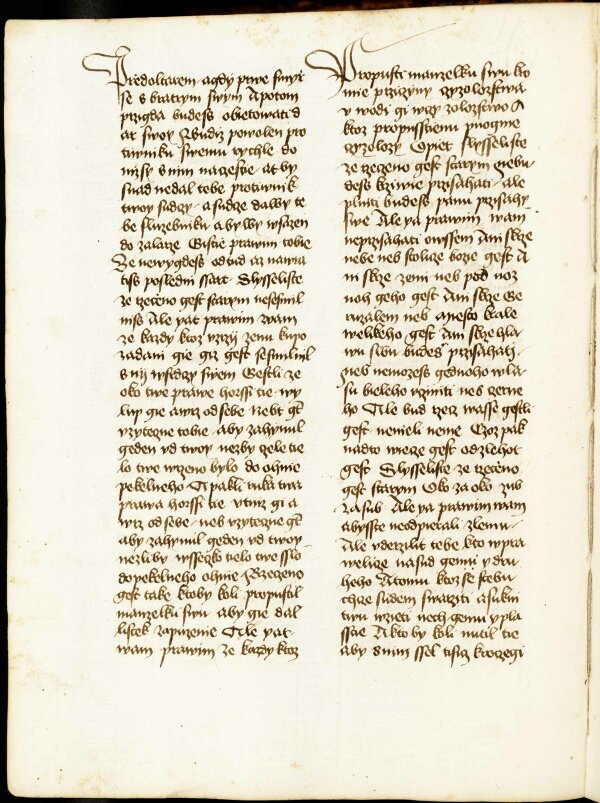 Przedoltarem · agdy prwe smyeſ
ſe s bratrym ſwym Apotom
przigda budeſs obietowati d
ar ſwoy Zbudiz powolen pro
tiwniku ſwemu rychle do
niziſ s nim naczeſtie · at by
ſnad nedal tebe protiwnik
twoy ſudczy · a ſudcze dalby te
be ſluzebniku a by lby wſazen
do zalarze Giſtie prawim tobie
Ze newygdeſs odtud az nawra
tiſs poſledni ſſart · Slyſſeliſte
ze rzeczeno geſt ſtarym neſeſmil
niſs Ale yat prawim wam
ze kazdy ktoz wzrzij zenu kupo
zadani gie giz geſt ſeſmilnil
s nij wſrdczy ſwem Geſtli ze
oko twe prawe horſſi tie · wy
lup gie awrz odſebe Nebt gt
vzyteczne tobie · aby zahynul
geden vd twoy nezby czele tie
lo twe wrzeno bylo do ohnie
pekelneho · A pakli ruka twa
prawa horſſi tie vtniz gi a
wrz odſebe · neb vzyteczne gt
aby zahynul geden vd twoy
nezliby wſſeczko tielo twe ſſlo
dopekelneho ohnie Rzeczeno
geſt take ktoby koli propuſtil
manzelku ſwu aby gie dal
liſtek zapuzenie Ale yat
wam prawim ze kazdy ktoz
Propuſti manzelku ſwu kro
mie przicziny czyzoloziſtwa
vwodi gi wczyzoloziſtwo A
ktoz propuſſtienu pogme
czyzolozy Opiet ſlyſſeliſte
ze rzeczeno geſt ſtarym nebu
deſs krziwie przyſahati · ale
plniti budeſs panu przyſahy
ſwe Ale ya prawim wam
neprziſahati owſſem Ani ſkrze
nebe neb ſtolicze bozie geſt A
ni ſkrze zemi neb pod noz
noh geho geſt Ani ſkrze Ge
ruzalem neb mieſto krale
welikeho geſt Ani ſkrze hla
wu ſwu budeſs przyſahati ·
neb nemozeſs gednoho wla
ſu bieleho vcziniti neb czerne
ho Ale bud rzecz waſſe geſtli
geſt nenieli nenie Czoz pak
nadto wiecze geſt od zlehot
geſt Slyſſeliſte ze rzeczeno
geſt ſtarym Oko za oko zub
za zub Ale ya prawim wam
abyſſte neodpierali zlemu ·
Ale vderzilit tebe kto wpra
welicze naſtad gemu y dru
heho Atomu ktoz ſe ſtebu
chcze ſudem ſwarziti aſukni
twu wzieti nech gemu y pla
ſſtie A kto by koli nutil tie
aby s nim ſſel tiſicz krocziegi